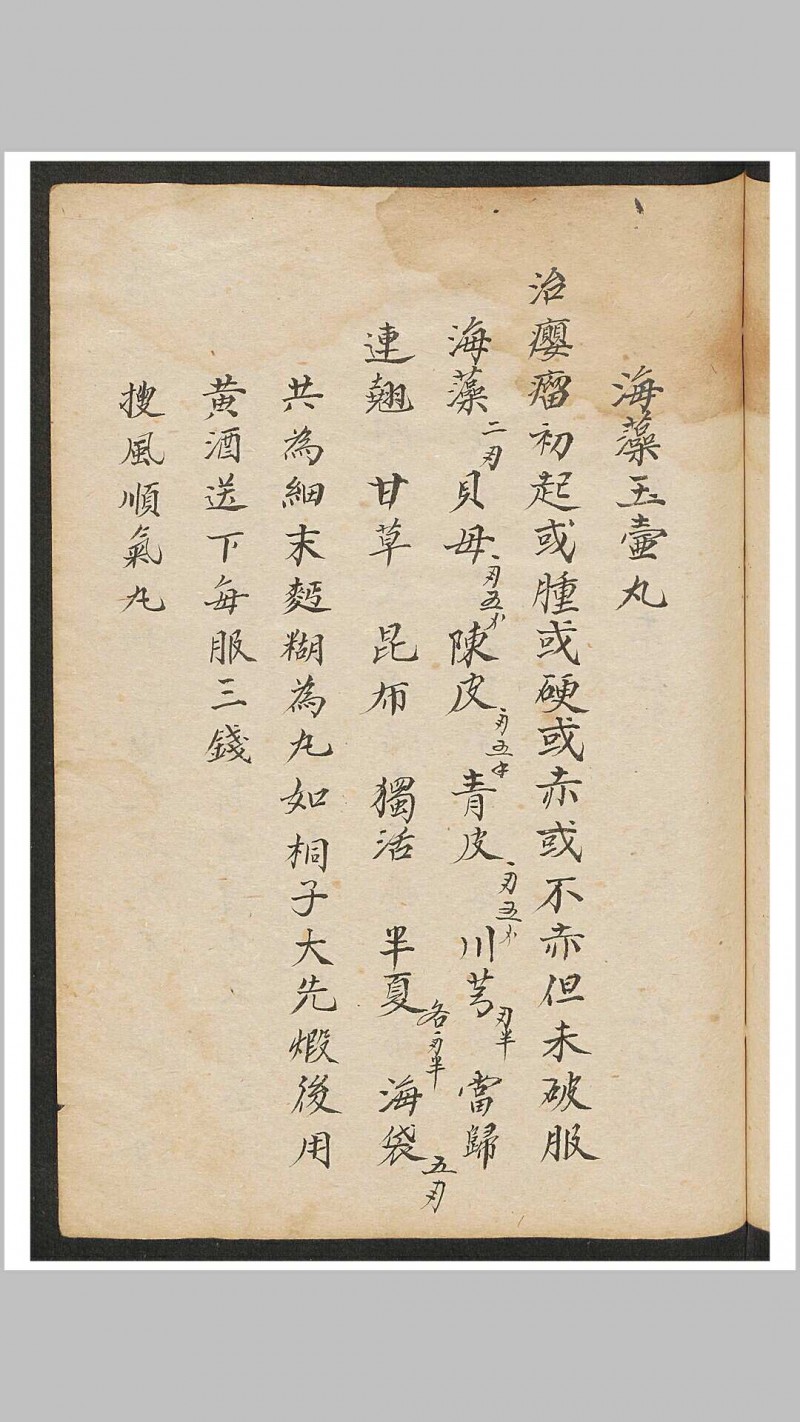 海藻玉壷丸
治癭瘤初起或腫或硬或赤或不赤但未破服
海藻二刃貝母一刃五卜陳皮一刃五卜青皮一刃五卜川芎刃半當歸
連翹甘草昆布獨活半夏各一刃半海袋五刃
共為細末麫糊為丸如桐子大先煆後用
黄酒送下每服三錢
搜風順氣丸